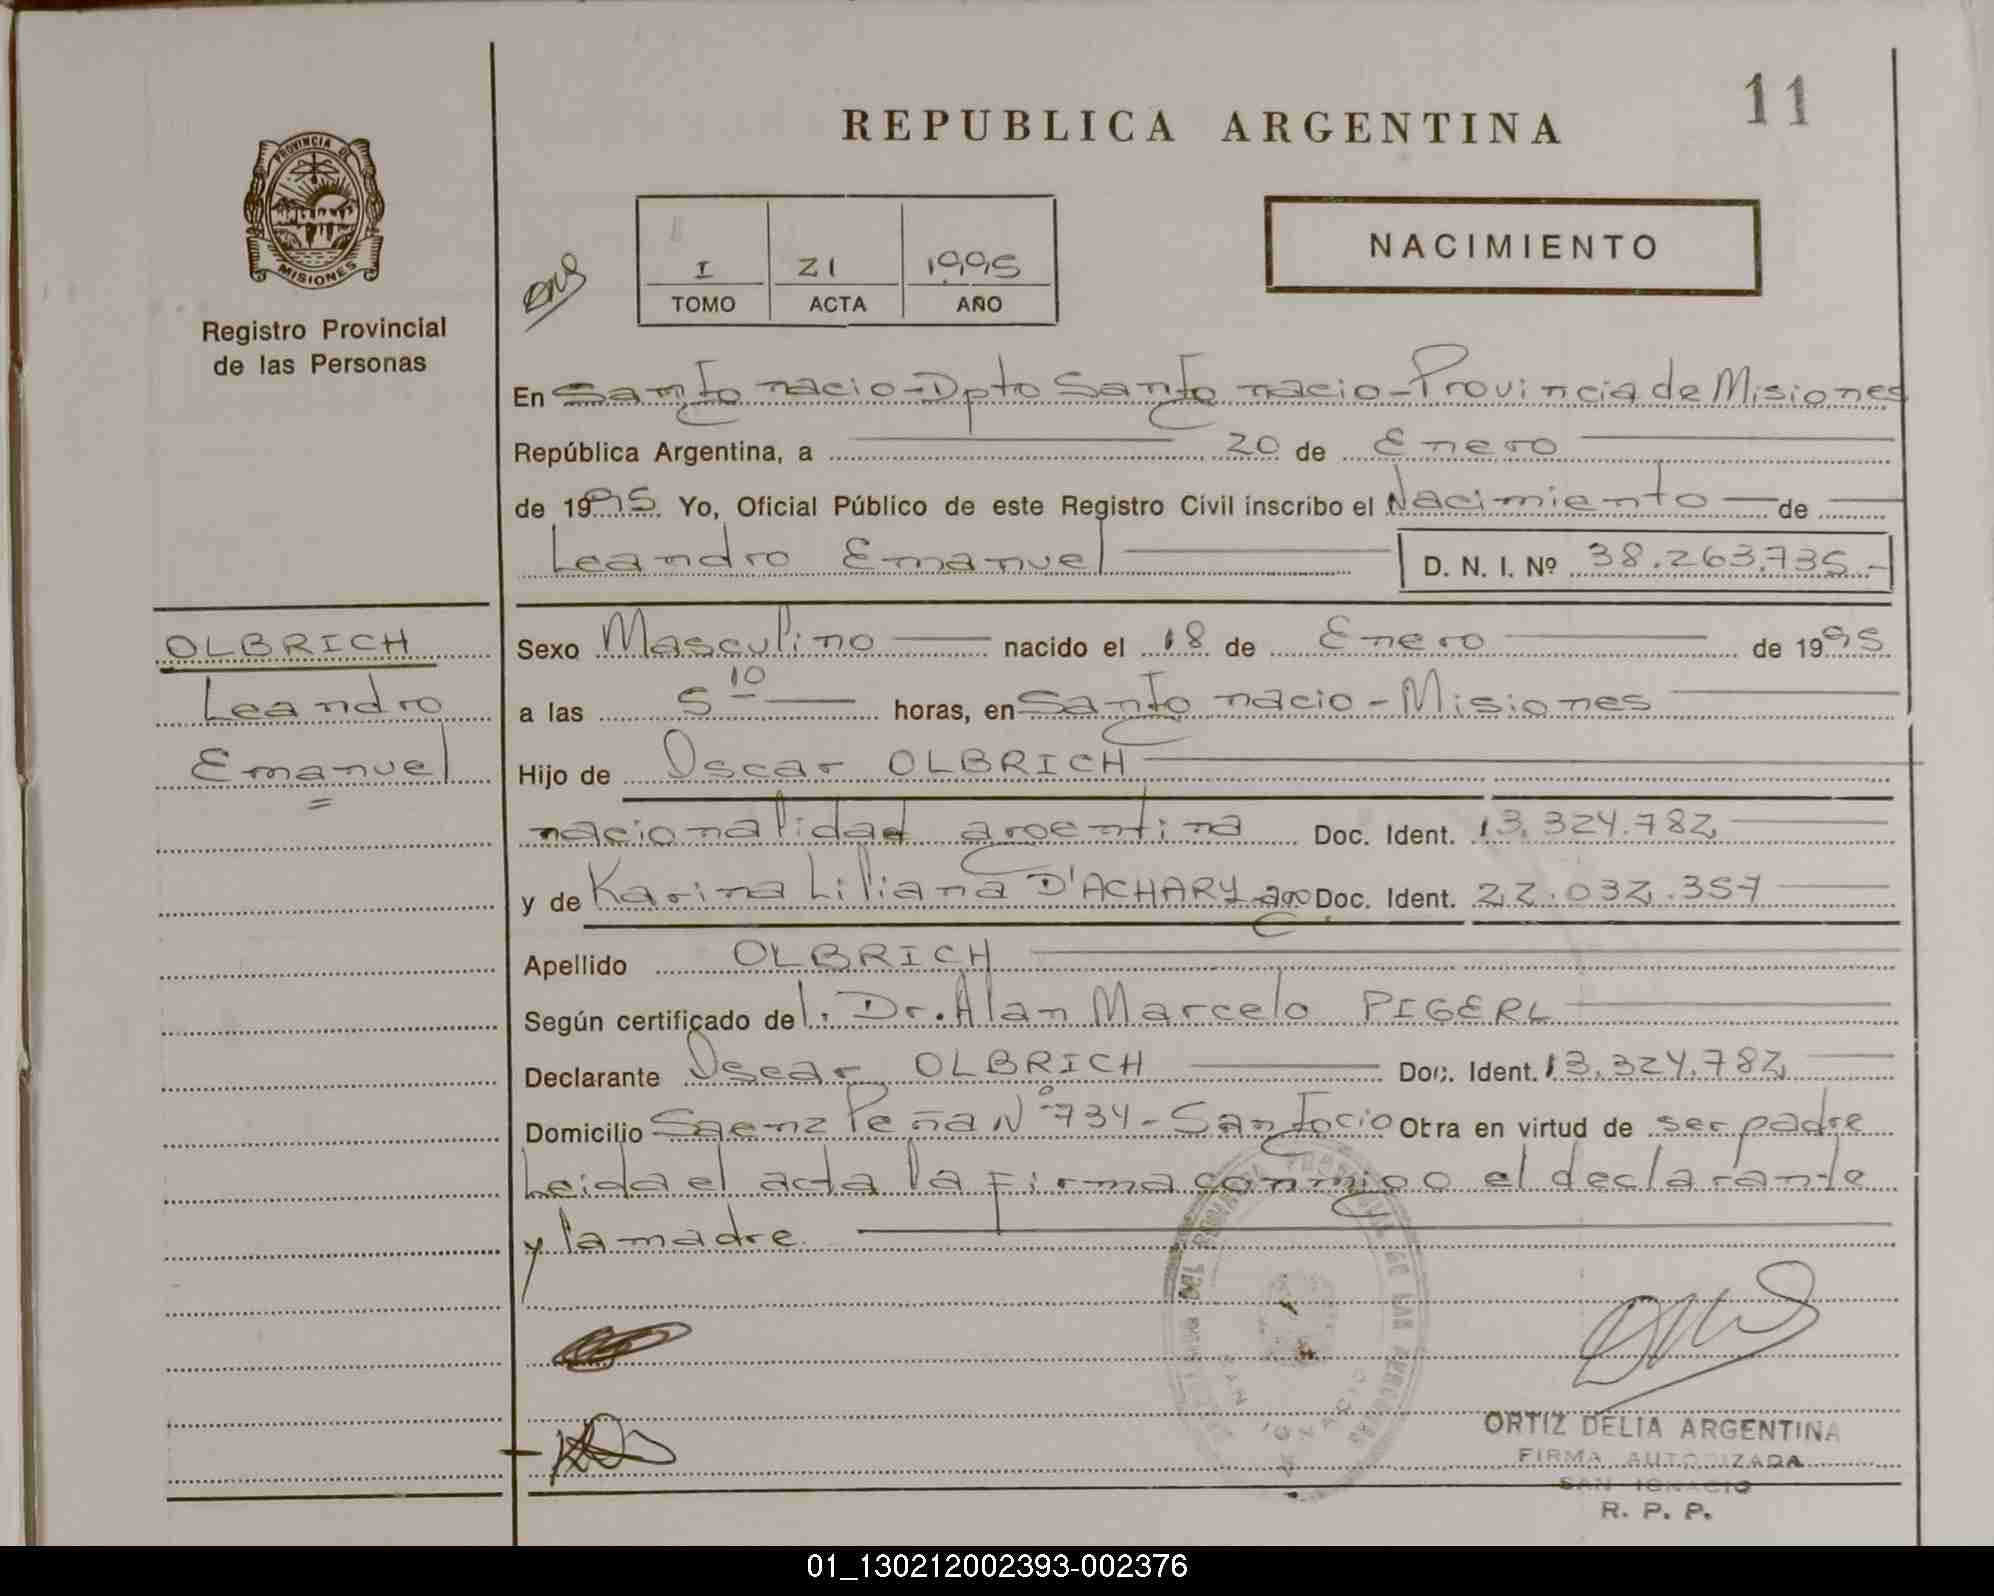 11
REPUBLICA ARGENTINA
PROVINCIA DE
MISIONES
Registro Provincial
de las Personas
I 21 1995
TOMO ACTA AÑO
NACIMIENTO
En San Ignacio - Dpto San Ignacio - Provincia de Misiones
República Argentina, a 20 de Enero
de 1995 Yo, Oficial Público de este Registro Civil inscribo el Nacimiento de
Leandro Emanuel D. N. I. Nº 38.263.735.-
OLBRICH
Leandro
Emanuel
Sexo Masculino nacido el 18 de Enero de 1995
a las 5 10 horas, en San Ignacio - Misiones
Hijo de Oscar OLBRICH
nacionalidad argentina Doc. Ident. 13.324.782
y de Karina Liliana D'ACHARY arg Doc. Ident. 22.032.357
Apellido OLBRICH
Según certificado del. Dr. Alan Marcelo PIGERL
Declarante Oscar OLBRICH Doc. Ident. 13.324.782
Domicilio Saenz Peña Nº 734 - San Igcio Obra en virtud de ser padre
Leida el acta la firma conmigo el declarante
y la madre
SAN IGNACIO
ORTIZ DELIA ARGENTINA
FIRMA AUTORIZADA
SAN IGNACIO
R. P. P.
01_130212002393-002376